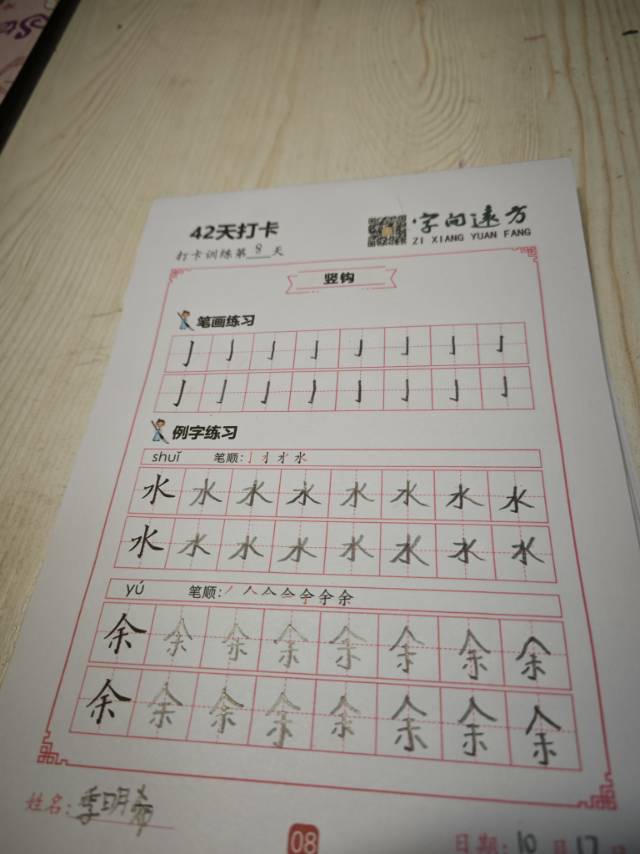 42天打卡
字向远方
ZI XIANG YUAN FANG
打卡训练第8天
竖钩
笔画练习
亅亅亅亅亅亅亅亅
亅亅亅亅亅亅亅亅
例字练习
shuǐ 笔顺:
水水水水水水水水
水水水水水水水水
yú 笔顺:
余余余余余余余余
余余余余余余余余
姓名:季明希
08
日期:10月17日